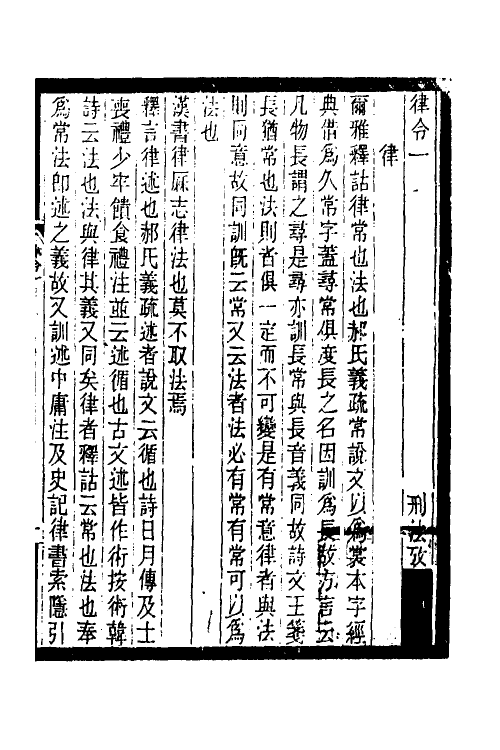 律令一　刑法攷
律
爾雅釋詁律常也法也郝氏義疏常說文以爲裳本字經
典借爲久常字蓋尋常俱度長之名因訓爲長故方言云
凡物長謂之尋是尋亦訓長常與長音義同故詩文王箋
長猶常也法則者俱一定而不可變是有常意律者與法
則同意故同訓旣云常又云法者法必有常有常可以爲
法也
漢書律厤志律法也莫不取法焉
釋言律述也郝氏義疏述者說文云循也詩日月傳及士
喪禮少牢饋食禮注並云述循也古文述皆作術按術韓
詩云法也法與律其義又同矣律者釋詁云常也法也奉
爲常法卽述之義故又訓述中庸注及史記律書索隱引